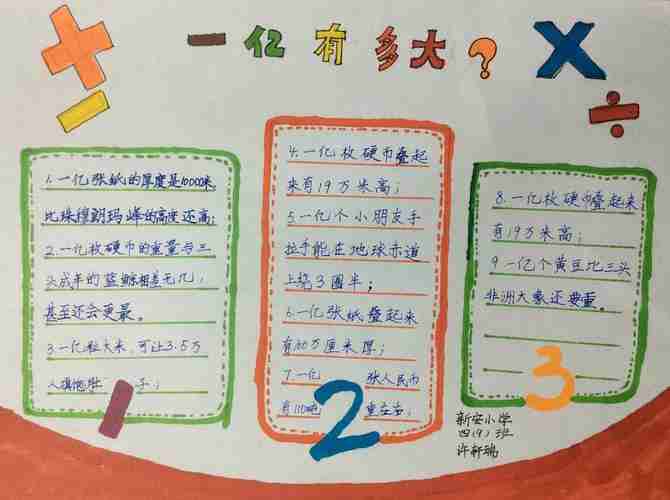 一亿有多大?
1.一亿张纸的厚度是10000米,
比珠穆朗玛峰的高度还高;
2.一亿枚硬币的重量与三
头成年的蓝鲸相差无几,
甚至还会更。
3.一亿粒大米,可让3.5万
人填饱肚子;
1
4.一亿枚硬币叠起
来有19万米高;
5.一亿个小朋友手
拉手能在地球赤道
上绕3圈半;
6.一亿张纸叠起来
有100万厘米厚;
7.一亿 张人民币
有110吨 重左右;
2
8.一亿枚硬币叠起来
有19万米高;
9.一亿个黄豆比三头
非洲大象还要重。
3
新安小学
四(9)班
许轩瑞